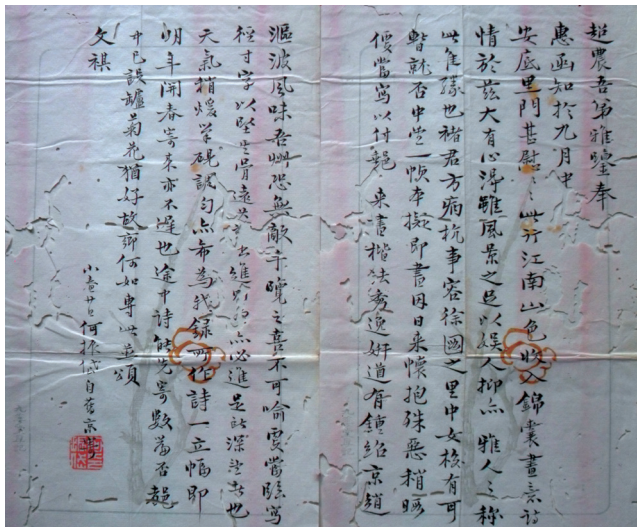 超農吾弟雅鑒奉
惠函知於九月中
安底里門甚慰〻此行江南山色收入錦囊畫意詩
情於茲大有心得雖風景之足以娛人抑亦雅人之稱
此佳緣也褚君方病抗事容徐圖之里中女校有可
暫就否中堂一幀本擬即書因日來懷抱殊惡稍暇
便當寫以付 來書楷法秀逸妍遒有鍾紹京趙
漚波風味吾 恐無敵手 之喜不可喻 當 寫
徑寸字以堅其骨遠其 進則 必進是所深望者也
天氣稍煖筆硯 亦希為我錄所作詩一立幅即
明年開春寄來亦不遲也途中詩能先寄數首否
廿巳 罏菊花猶好故鄉何如專此並頌
文祺
小 廿日何振岱自舊京